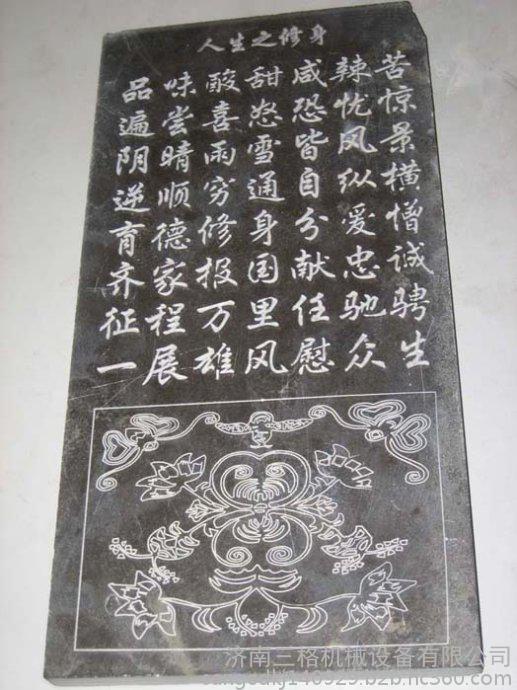 人生之修身
品味酸甜咸辣苦
遍尝喜怒恐忧惊
阴晴雨雪皆风景
逆顺穷通自纵横
育德修身分爱憎
齐家报国献忠诚
征程万里任驰骋
一展雄风慰众生
济南三格机械设备有限公司